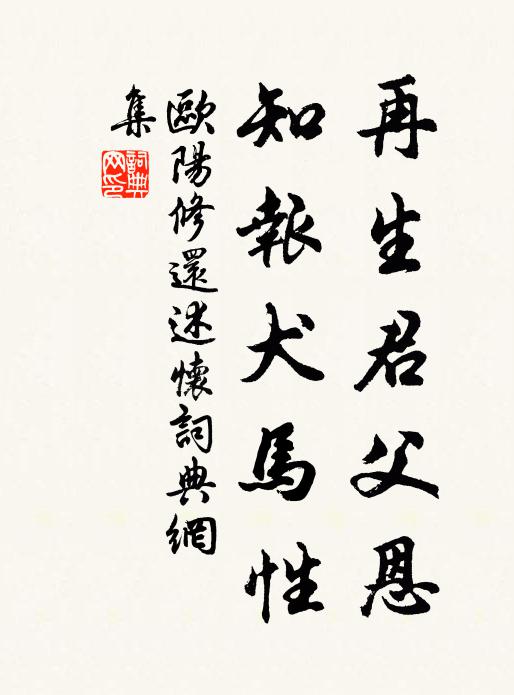 再生君父恩
知報犬馬性
歐陽修還述懷詞典網
集
詞典
网印